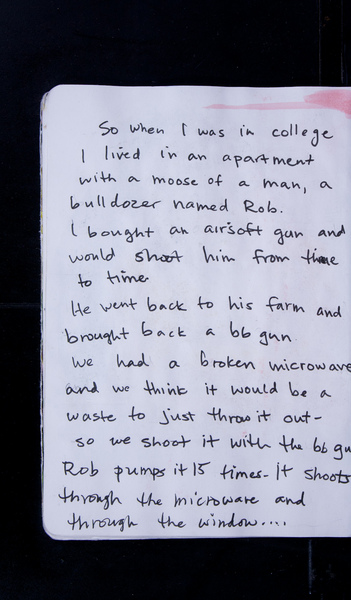 So when I was in college
I lived in an apartment
with a moose of a man, a
bulldozer named Rob.
I bought an airsoft gun and
would shoot him from time
to time.
He went back to his farm and
brought back a bb gun.
We had a broken microwave
and we think it would be a
waste to just throw it out-
so we shoot it with the bb gu
Rob pumps it 15 times. It shoots
through the microwave and
through the window....